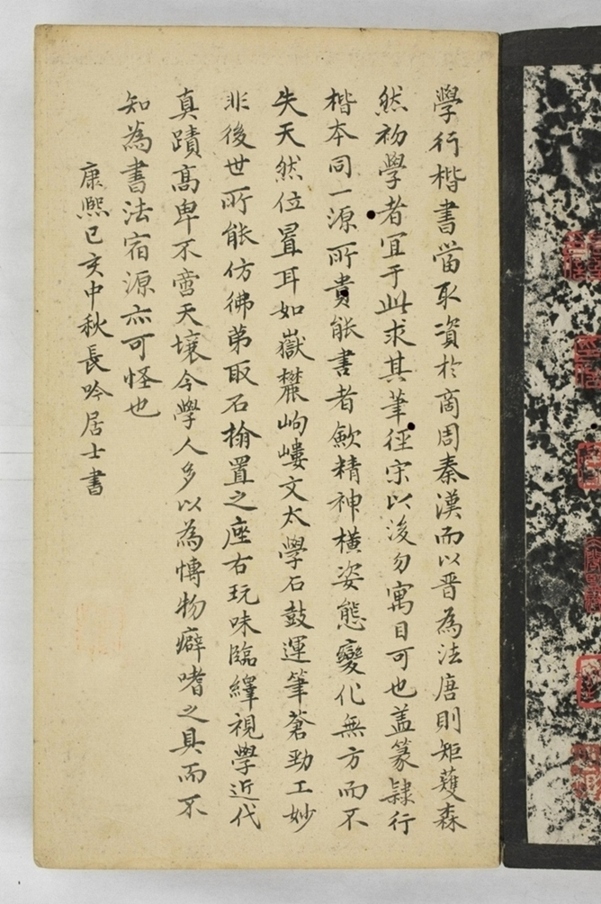 學行楷書當取資於商周秦漢而以晉為法唐則矩蒦森
然初學者冝于此求其筆徑宋以後勿寓目可也盖篆隷行
楷本同一源所貴能書者歛精神橫姿態變化無方而不
失天然位置耳如嶽麓岣嶁文太學石鼓運筆蒼勁工妙
非後世所能仿彿苐取石搨置之座右玩味臨繹視學近代
真蹟高卑不啻天壤今學人多以為愽物癖嗜之具而不
知為書法宿源亦可怪也
康熙己亥中秋長吟居士書